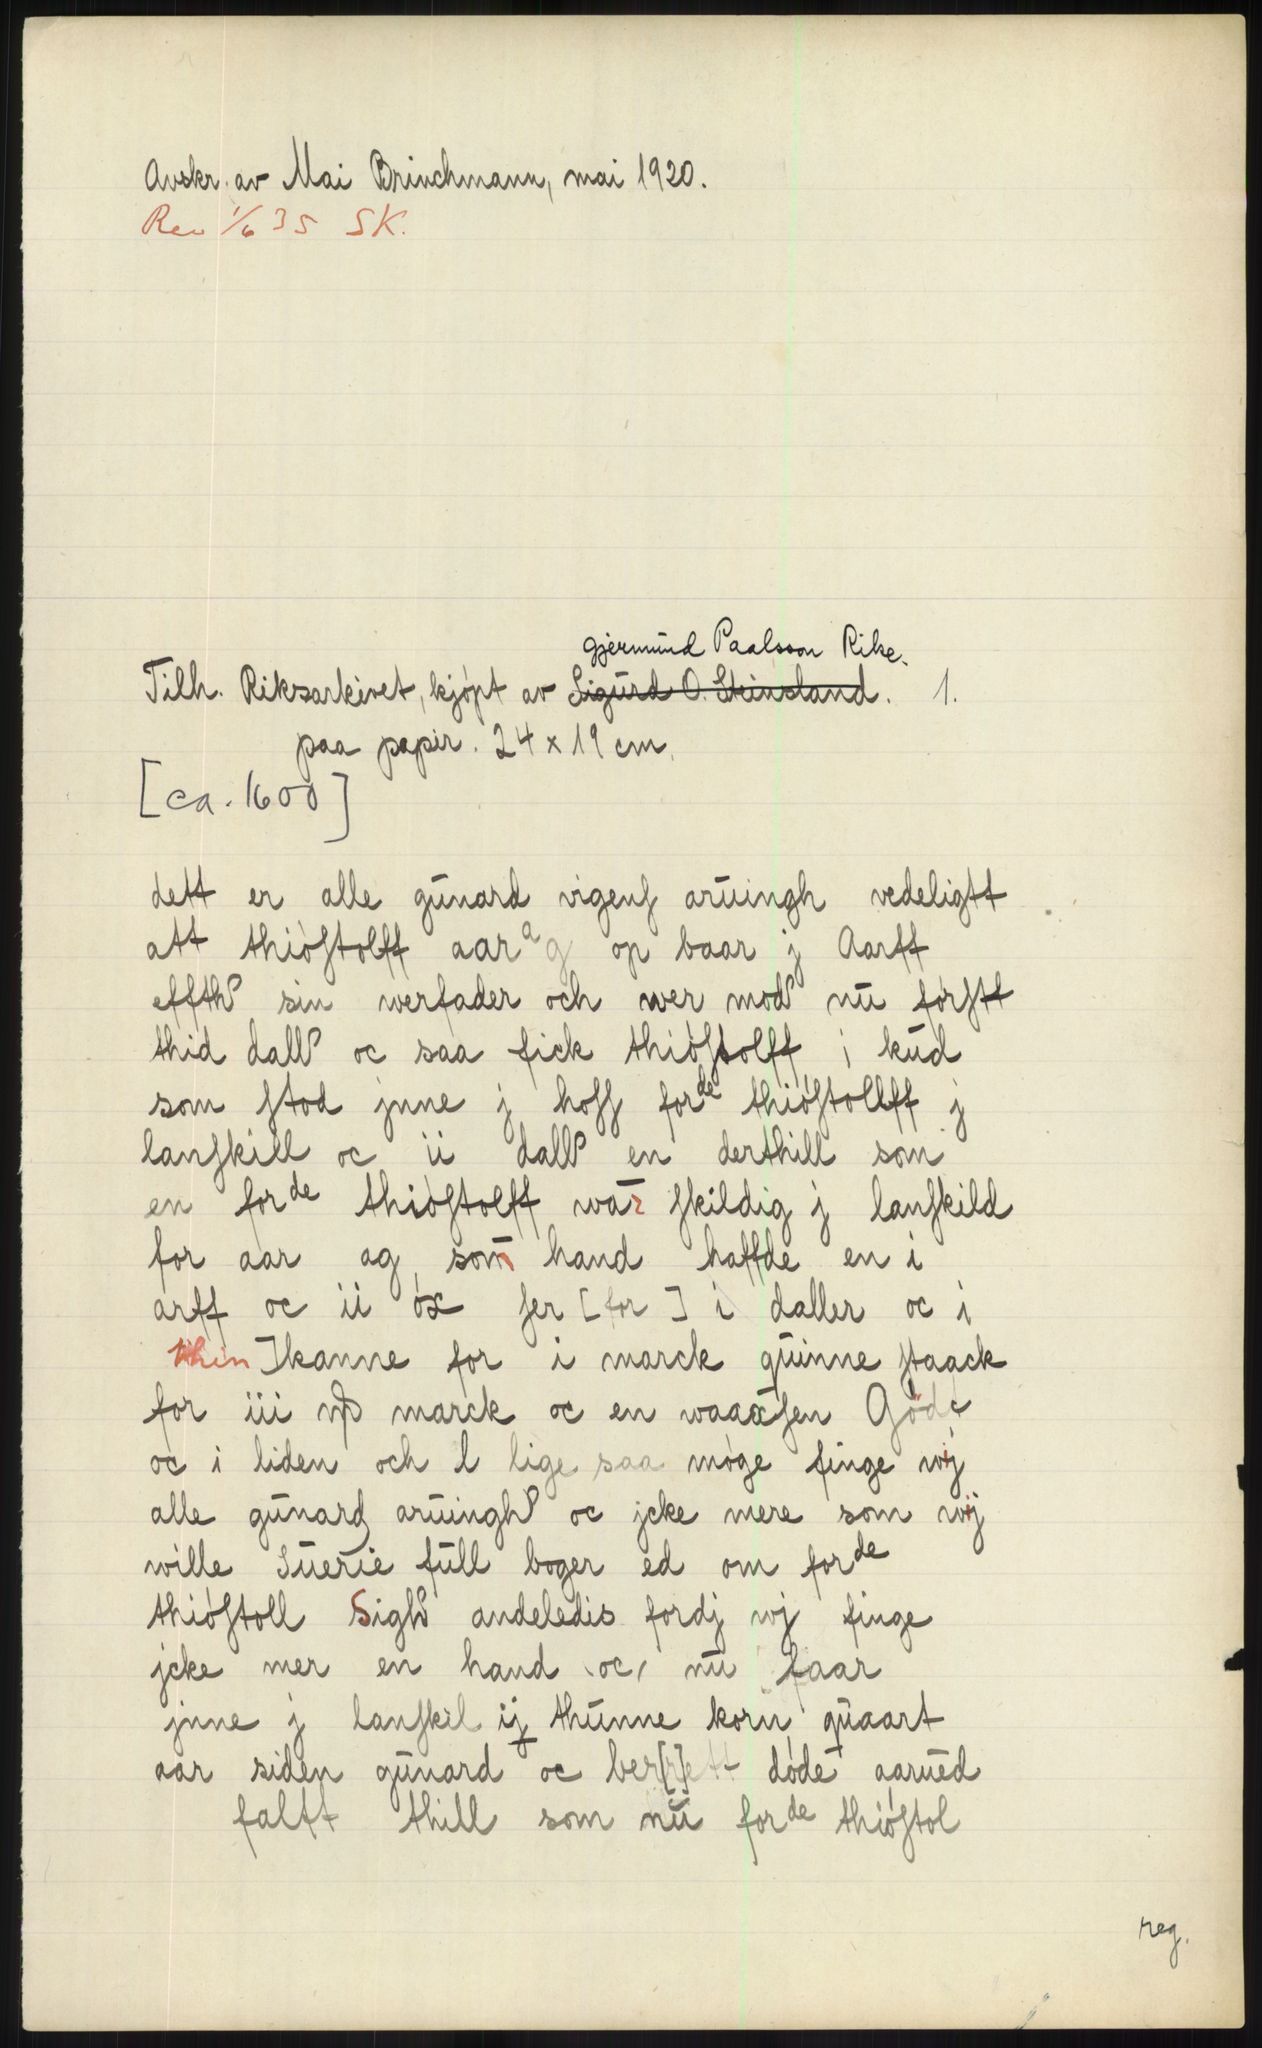 Avskr. av Mai Brinchmann, mai 1920.
Rev 1/6 35 SK.
gjermund Paalsson Rike.
Tilh. Riksarkivet, kjøpt av Sigurd O. Steinsland. 1.
paa papir. 24 x 19 cm.
[ca. 1600]
dett er alle gunard vigens aruingh vedeligtt
att thiøstolff aar ag op baar j Aarff
effth sin werfader och wer mod nu førstt
thid dall oc saa fick thiøstolff i kud
som stod jnne j hoss forde thiøstollff j
lanskill oc ii dall en derthill som
en forde thiøstolff war skildig j lanskild
for aar ag som hand haffde en i
arff oc ii øx ser [for] i daller oc i
thin]kanne for i marck quinne staack
for iii marck oc en waaxsen Göde
oc i liden och l lige saa møge finge wj
alle gunard aruingh oc jcke mere som wij
wille Suerie full boger ed om forde
thiøstoll Sigh andeledis fordj wj finge
jcke mer en hand oc nu faar
jnne j lanskil ij thunne korn quaart
aar siden gunard oc ber[r]ett døde aarued
faltt thill som nu forde thiøstol
reg.